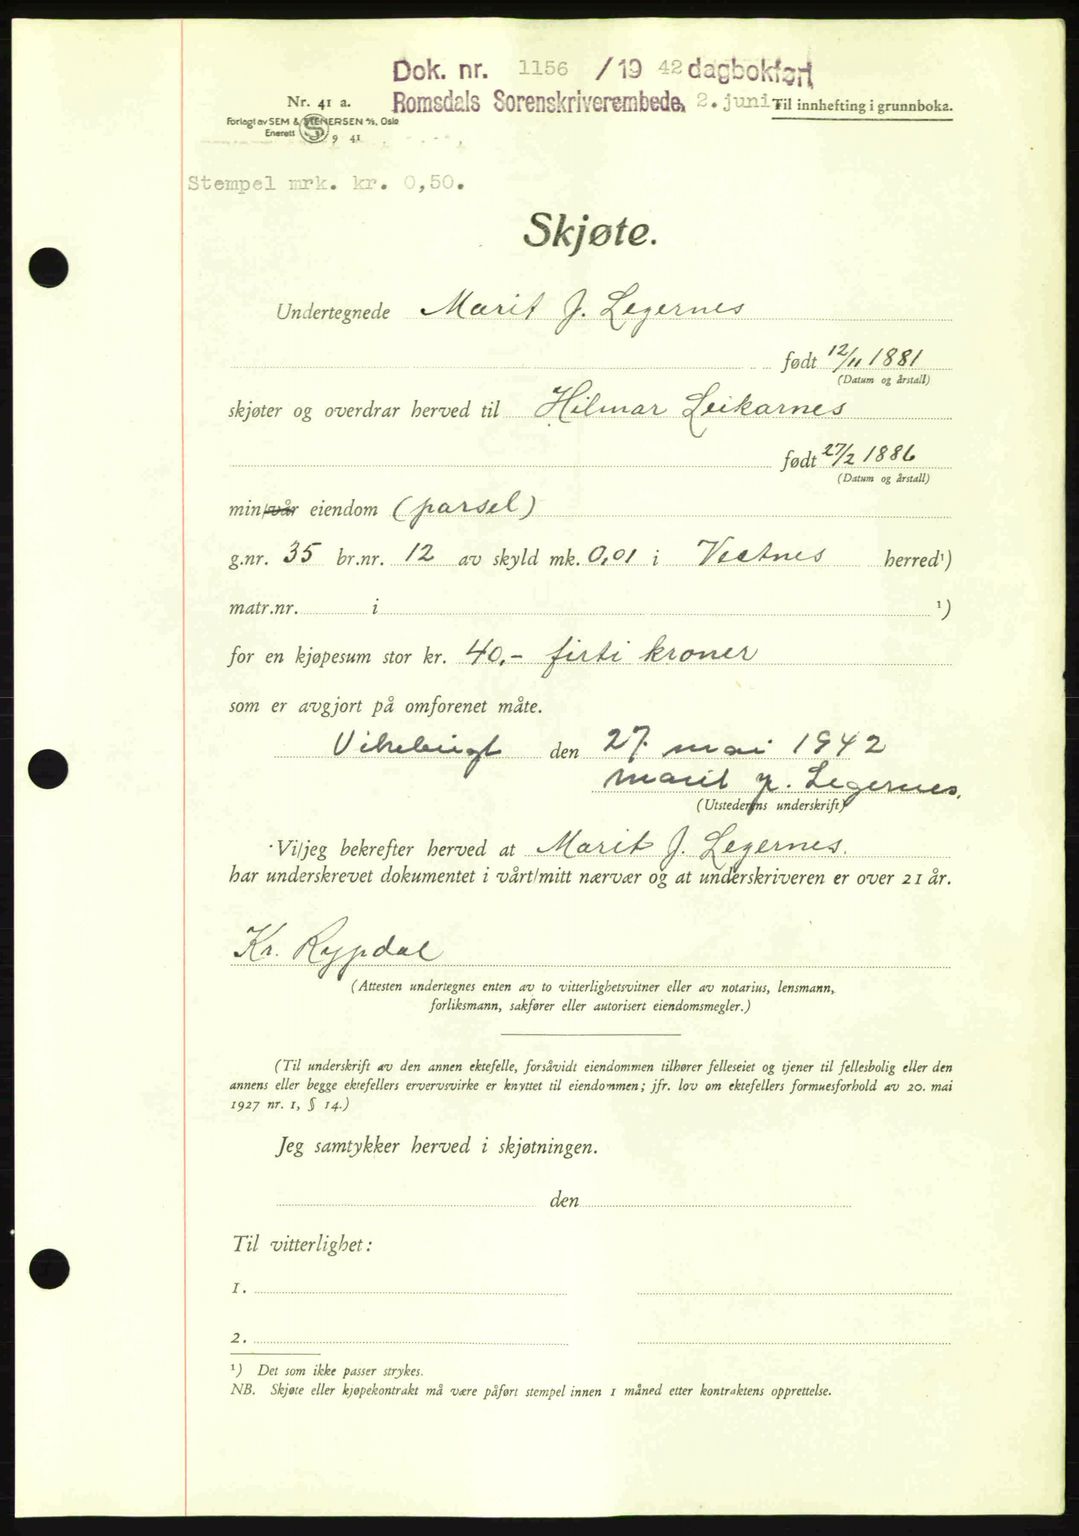 Dok. nr. 1156 /19 42 dagbokført
Romsdals Sorenskriverembede, 2. juni
Nr. 41 a.
Til innhefting i grunnboka.
Forlagt av SEM & STENERSEN A/S, Oslo
Enerett S 9 41
Stempel mrk. kr. 0,50.
Skjøte.
Undertegnede Marit J. Legernes
født 12/11 1881
(Datum og årstall)
skjøter og overdrar herved til Hilmar Leikarnes
født 27/2 1886
(Datum og årstall)
min/vår eiendom (parsel)
g.nr. 35 br.nr. 12 av skyld mk. 0,01 i Vestnes herred¹)
matr.nr. i ¹)
for en kjøpesum stor kr. 40.- firti kroner
som er avgjort på omforenet måte.
Vikebugt den 27. mai 1942
Marit J. Legernes.
(Utstederens underskrift)
Vi/jeg bekrefter herved at Marit J. Legernes.
har underskrevet dokumentet i vårt/mitt nærvær og at underskriveren er over 21 år.
Kr. Rypdal
(Attesten undertegnes enten av to vitterlighetsvitner eller av notarius, lensmann,
forliksmann, sakfører eller autorisert eiendomsmegler.)
(Til underskrift av den annen ektefelle, forsåvidt eiendommen tilhører felleseiet og tjener til fellesbolig eller den
annens eller begge ektefellers ervervsvirke er knyttet til eiendommen; jfr. lov om ektefellers formuesforhold av 20. mai
1927 nr. 1, § 14.)
Jeg samtykker herved i skjøtningen.
den
Til vitterlighet:
1.
2.
¹) Det som ikke passer strykes.
NB. Skjøte eller kjøpekontrakt må være påført stempel innen 1 måned etter kontraktens opprettelse.